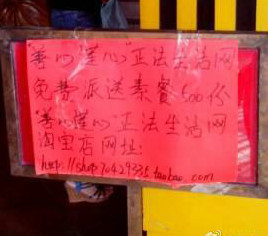 "善心莲心"正法生活网
免费派送素餐500份
"善心莲心"正法生活网
淘宝店网址:
http://shop70429335.taobao.com